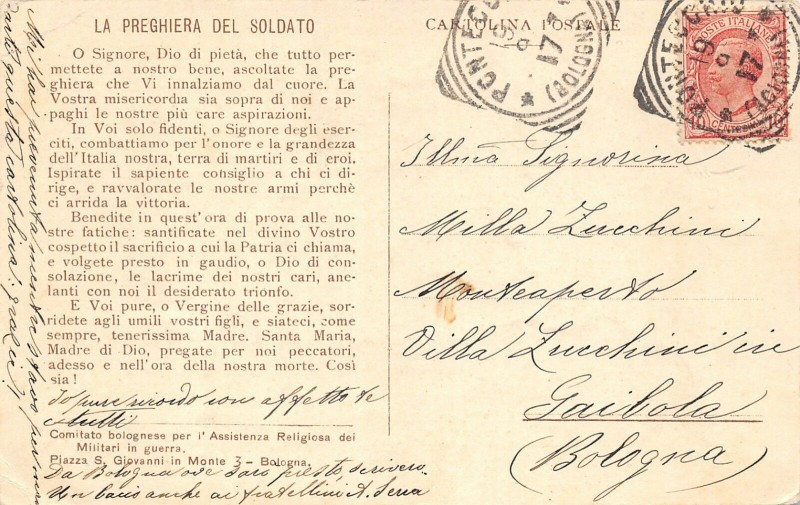 LA PREGHIERA DEL SOLDATO
O Signore, Dio di pietà, che tutto per-
mettete a nostro bene, ascoltate la pre-
ghiera che Vi innalziamo dal cuore. La
Vostra misericordia sia sopra di noi e ap-
paghi le nostre più care aspirazioni.
In Voi solo fidenti, o Signore degli eser-
citi, combattiamo per l'onore e la grandezza
dell'Italia nostra, terra di martiri e di eroi.
Ispirate il sapiente consiglio a chi ci di-
rige, e ravvalorate le nostre armi perchè
ci arrida la vittoria.
Benedite in quest'ora di prova alle no-
stre fatiche: santificate nel divino Vostro
cospetto il sacrificio a cui la Patria ci chiama,
e volgete presto in gaudio, o Dio di con-
solazione, le lacrime dei nostri cari, ane-
lanti con noi il desiderato trionfo.
E Voi pure, o Vergine delle grazie, sor-
ridete agli umili vostri figli, e siateci, come
sempre, tenerissima Madre. Santa Maria,
Madre di Dio, pregate per noi peccatori,
adesso e nell'ora della nostra morte. Così
sia!
Io pure ricordo con affetto te
e tutti
Comitato bolognese per l'Assistenza Religiosa dei
Militari in guerra.
Piazza S. Giovanni in Monte 3 - Bologna.
Da Bologna ove sarò presto, scriverò.
Un bacio anche ai fratellini A. Serra
Mi hai prevenuta mentre stavo per
darti questa cartolina: grazie!
CARTOLINA POSTALE
PONTECCHIO
19
17
(BOLOGNA)
POSTE ITALIANE
10 CENTESIMI 10
PONTECCHIO
19
17
(BOLOGNA)
Illma Signorina
Milla Zucchini
Monteaperto
Villa Zucchini in
Gaibola
(Bologna)